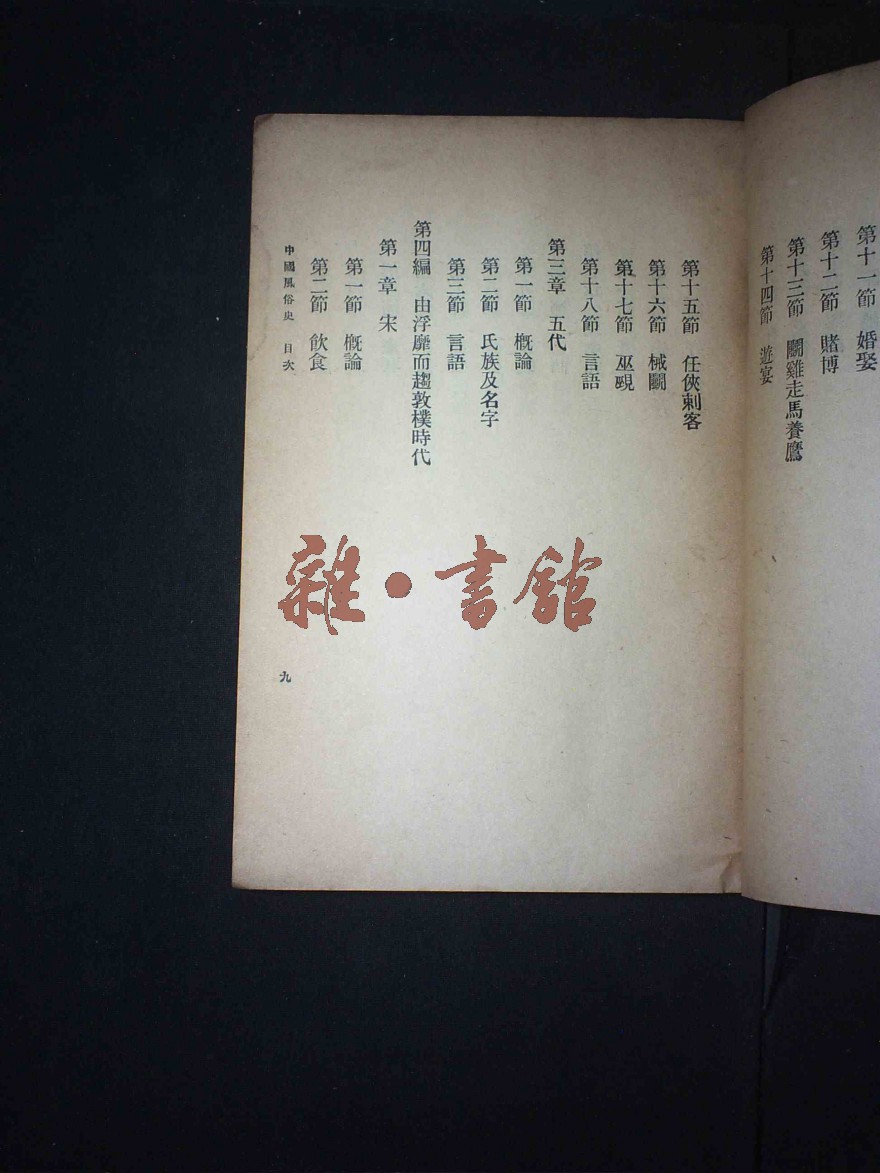 第十一節 婚娶
第十二節 賭博
第十三節 鬭雞走馬養鷹
第十四節 遊宴
第十五節 任俠刺客
第十六節 械鬭
第十七節 巫覡
第十八節 言語
第三章 五代
第一節 概論
第二節 氏族及名字
第三節 言語
第四編 由浮靡而趨敦樸時代
第一章 宋
第一節 概論
第二節 飲食
中國風俗史 目次
九
雜·書館